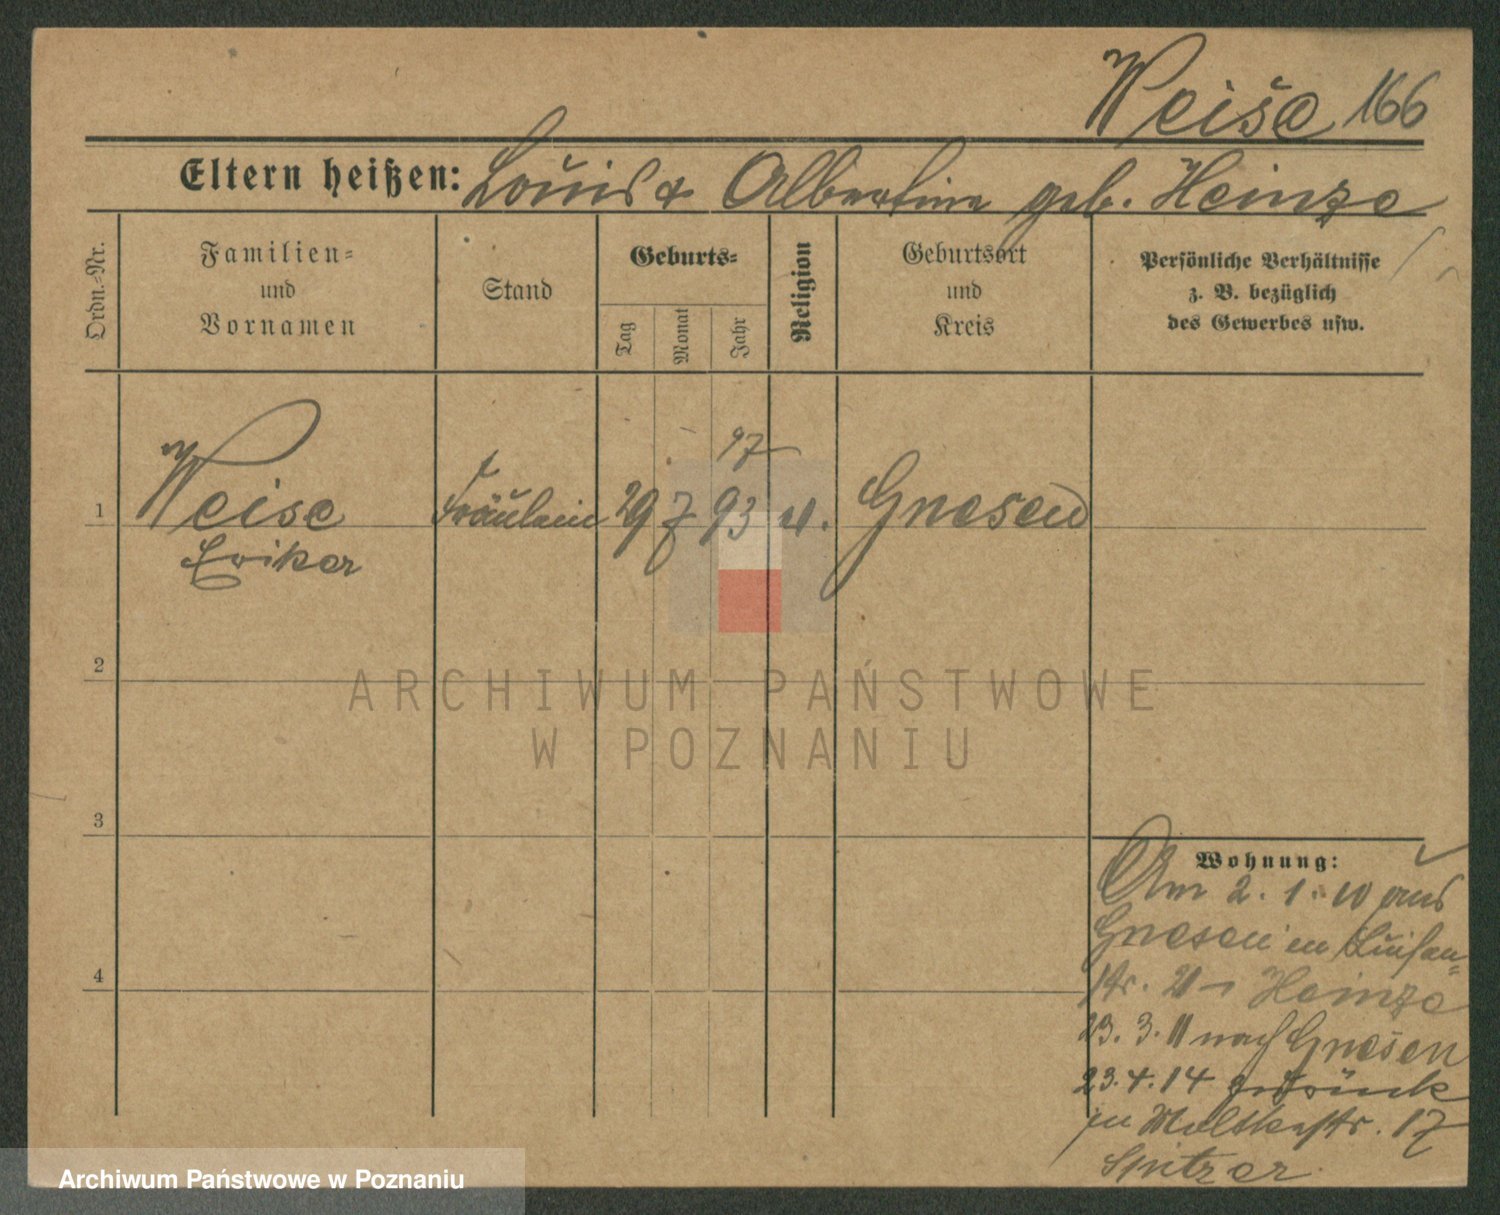 Weise 166
Eltern heißen: Louis & Albertine geb. Heinze
Ordn.-Nr.
Familien- und Vornamen
Stand
Geburts-
Tag
Monat
Jahr
Religion
Geburtsort und Kreis
Persönliche Verhältnisse
z. B. bezüglich
des Gewerbes usw.
97
1 Weise Fräulein 29 7 93 Gnesen
2
3
4
Wohnung:
Am 2. 1. 10 aus
Gnesen in Luisen-
str. 21 Heinze
23. 3. 11 nach Gnesen
23. 4. 14 zurück
in Moltkestr. 17
Spitzer.
ARCHIWUM PAŃSTWOWE
W POZNANIU
Archiwum Państwowe w Poznaniu